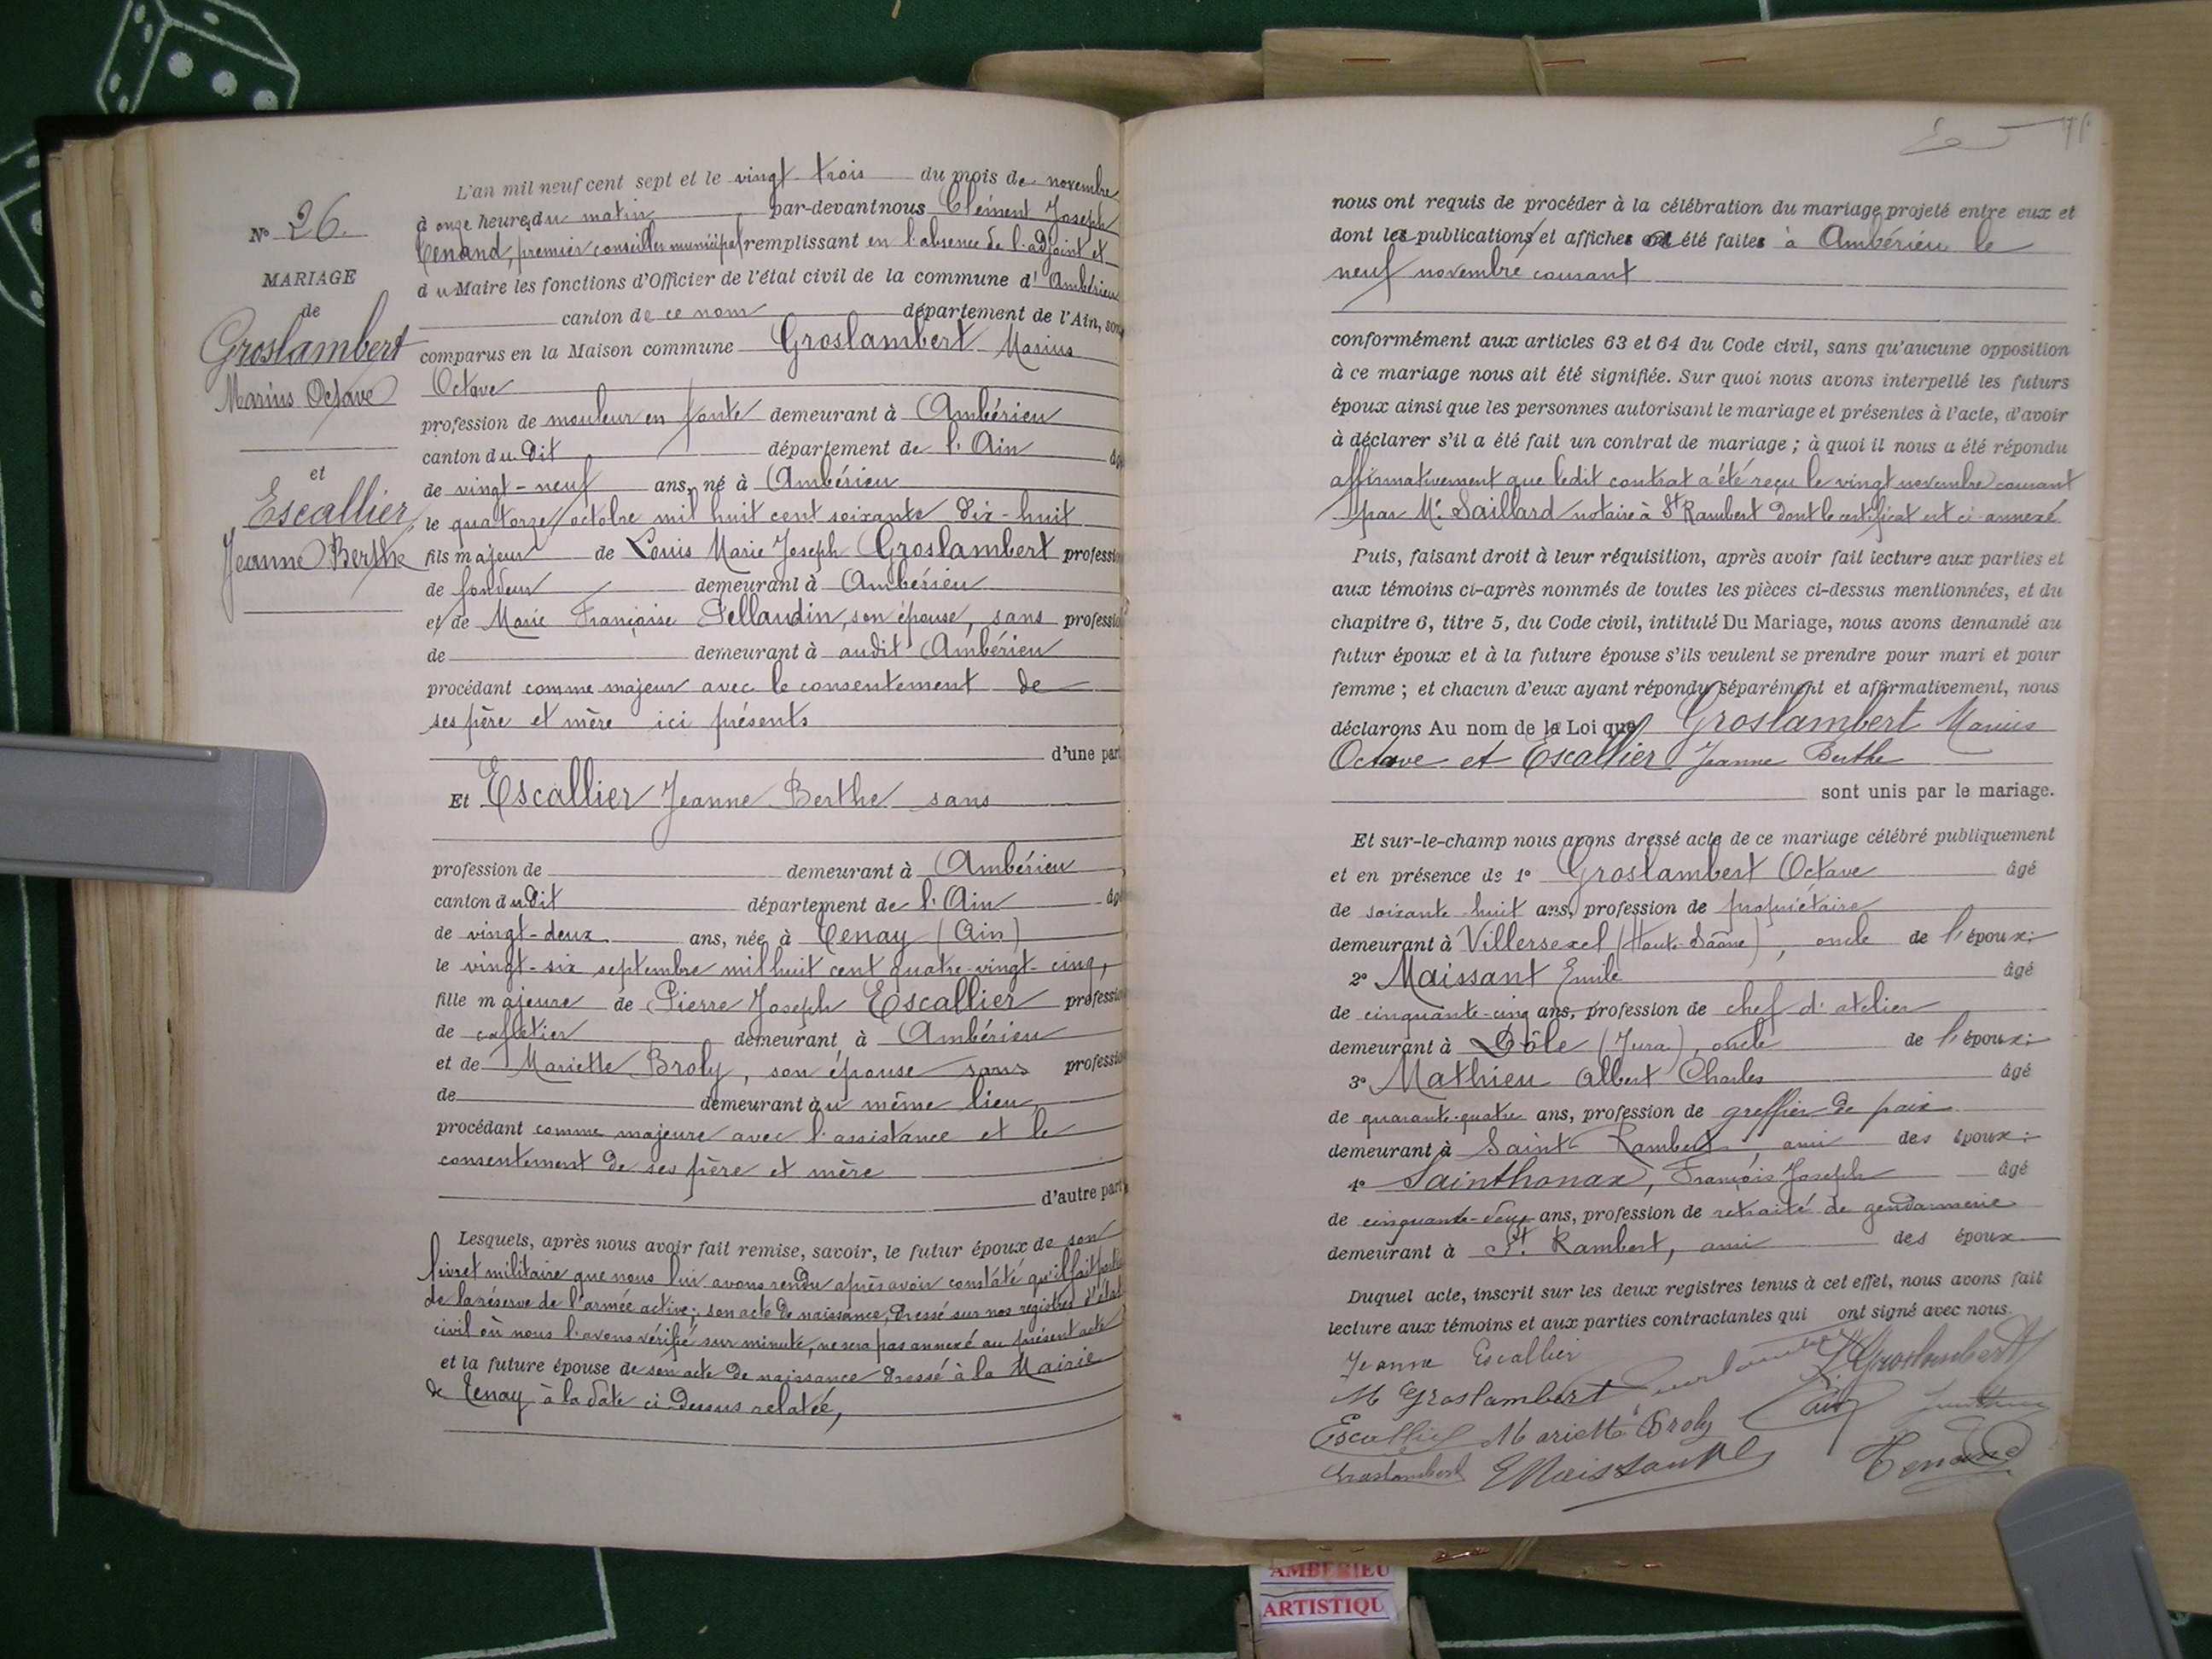 N° 26.
MARIAGE
de
Groslambert
Marius Octave
et
Escallier
Jeanne Berthe
L'an mil neuf cent sept et le vingt trois du mois de novembre
à onze heures du matin par-devant nous Clément Joseph
Tenand, premier conseiller municipal remplissant en l'absence de l'adjoint et
du Maire les fonctions d'Officier de l'état civil de la commune d'Ambérieu
canton de ce nom département de l'Ain, sont
comparus en la Maison commune Groslambert Marius
Octave
profession de mouleur en fonte demeurant à Ambérieu
canton du dit département de l'Ain âgé
de vingt-neuf ans, né à Ambérieu
le quatorze octobre mil huit cent soixante dix-huit
fils majeur de Louis Marie Joseph Groslambert profession
de fondeur demeurant à Ambérieu
et de Marie Françoise Pellaudin, son épouse, sans profession
de demeurant à audit Ambérieu
procédant comme majeur avec le consentement de
ses père et mère ici présents
d'une part
Et Escallier Jeanne Berthe sans
profession de demeurant à Ambérieu
canton du dit département de l'Ain âgé
de vingt-deux ans, née à Tenay (Ain)
le vingt-six septembre mil huit cent quatre-vingt-cinq,
fille majeure de Pierre Joseph Escallier profession
de cafetier demeurant à Ambérieu
et de Mariette Broly, son épouse sans profession
de demeurant au même lieu
procédant comme majeure avec l'assistance et le
consentement de ses père et mère
d'autre part
Lesquels, après nous avoir fait remise, savoir, le futur époux de son
livret militaire que nous lui avons rendu après avoir constaté qu'il fait partie
de la réserve de l'armée active; son acte de naissance, dressé sur nos registres d'état
civil où nous l'avons vérifié sur minute, ne sera pas annexé au présent acte
et la future épouse de son acte de naissance dressé à la Mairie
de Tenay à la date ci-dessus relatée,
nous ont requis de procéder à la célébration du mariage projeté entre eux et
dont les publications et affiches ont été faites à Ambérieu le
neuf novembre courant
conformément aux articles 63 et 64 du Code civil, sans qu'aucune opposition
à ce mariage nous ait été signifiée. Sur quoi nous avons interpellé les futurs
époux ainsi que les personnes autorisant le mariage et présentes à l'acte, d'avoir
à déclarer s'il a été fait un contrat de mariage ; à quoi il nous a été répondu
affirmativement que ledit contrat a été reçu le vingt novembre courant
par Me Saillard notaire à St Rambert dont le certificat est ci-annexé
Puis, faisant droit à leur réquisition, après avoir fait lecture aux parties et
aux témoins ci-après nommés de toutes les pièces ci-dessus mentionnées, et du
chapitre 6, titre 5, du Code civil, intitulé Du Mariage, nous avons demandé au
futur époux et à la future épouse s'ils veulent se prendre pour mari et pour
femme ; et chacun d'eux ayant répondu séparément et affirmativement, nous
déclarons Au nom de la Loi que Groslambert Marius
Octave et Escallier Jeanne Berthe
sont unis par le mariage.
Et sur-le-champ nous avons dressé acte de ce mariage célébré publiquement
et en présence de 1° Groslambert Octave âgé
de soixante-huit ans, profession de propriétaire
demeurant à Villersexel (Haute-Saône), oncle de l'époux;
2° Maissant Emile âgé
de cinquante-cinq ans, profession de chef d'atelier
demeurant à Dôle (Jura), oncle de l'époux;
3° Mathieu Albert Charles âgé
de quarante-quatre ans, profession de greffier de paix
demeurant à Saint-Rambert, ami des époux;
4° Sainthonax, François Joseph âgé
de cinquante-deux ans, profession de retraité de gendarmerie
demeurant à St Rambert, ami des époux
Duquel acte, inscrit sur les deux registres tenus à cet effet, nous avons fait
lecture aux témoins et aux parties contractantes qui ont signé avec nous.
Jeanne Escallier
M Groslambert
L. Groslambert
Escallier Mariette Broly
Groslambert EMaissant
Tenand
AMBERIEU
ARTISTIQU